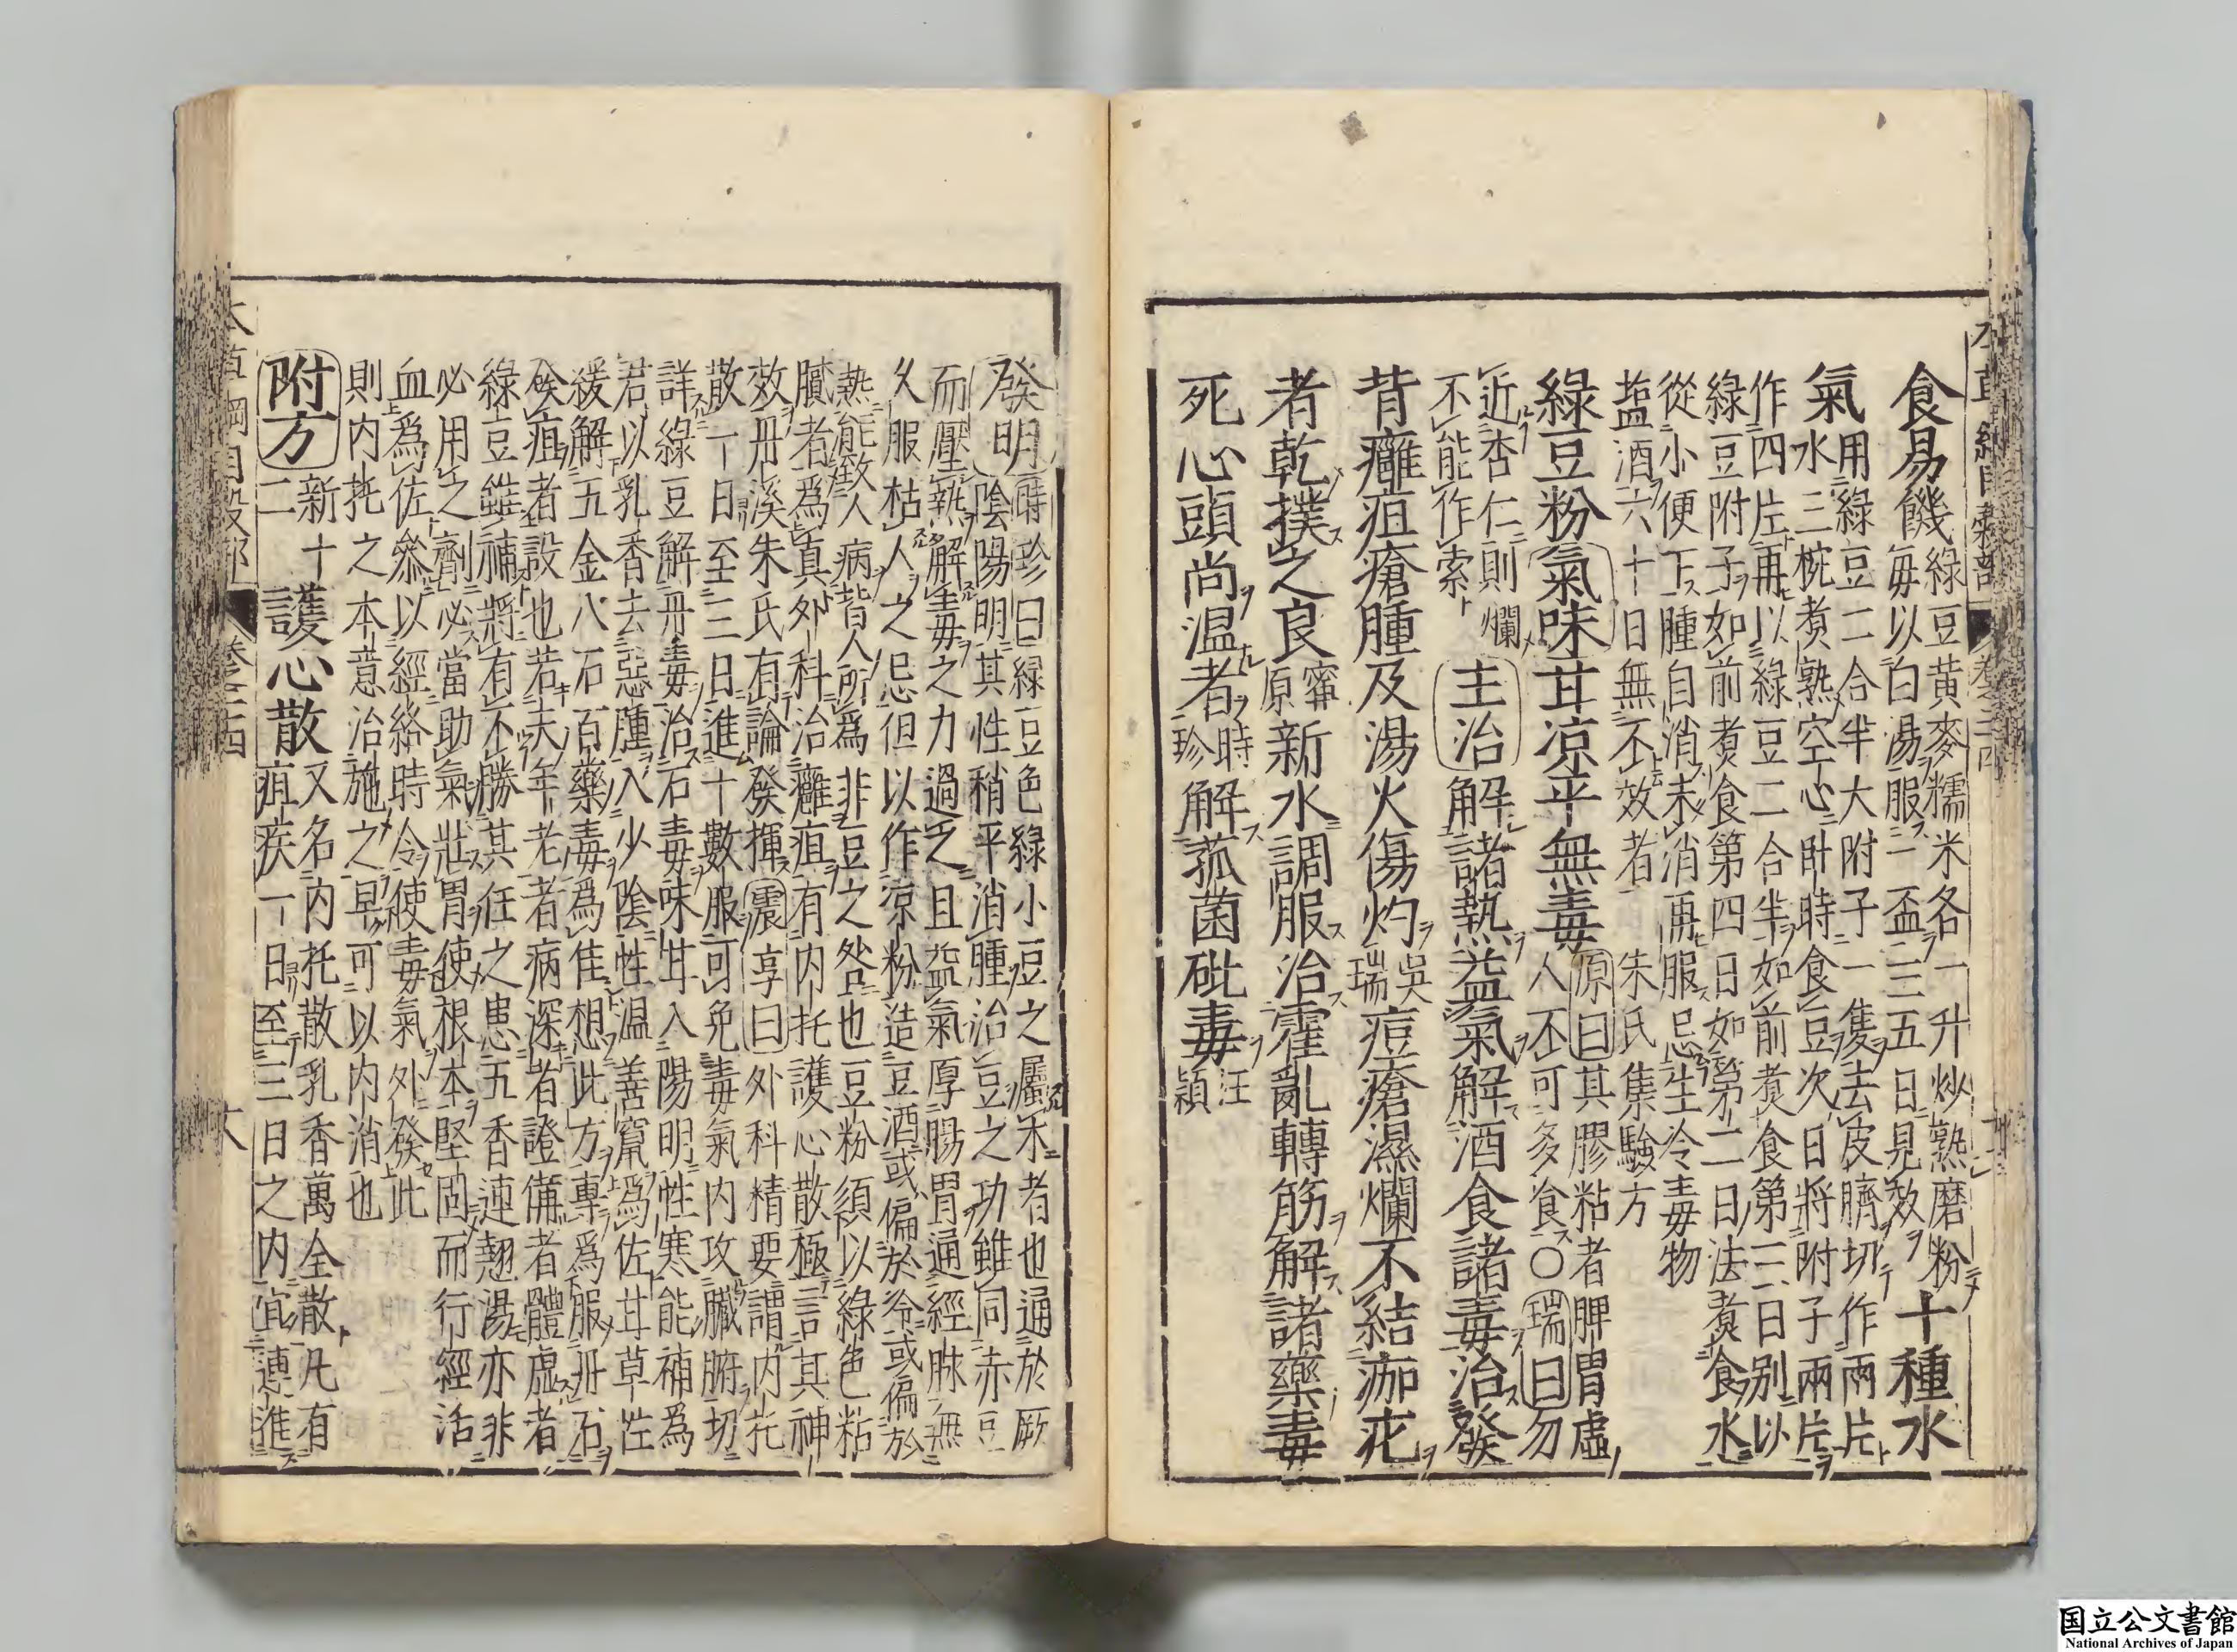 食易饑 綠豆黄麥糯米各一升炒熟磨粉
每以白湯服一盃三五日見效 十種水
氣 用綠豆二合半大附子一隻去皮臍切作兩片
水三椀煮熟空心卧時食豆次日將附子兩片
作四片再以綠豆二合半如前煮食第三日别以
綠豆附子如前煮食第四日如第二日法煮食水
從小便下腫自消未消再服忌生冷毒物
塩酒六十日無不效者 朱氏集驗方
綠豆粉 氣味 甘凉平無毒 原曰其膠粘者脾胃虛
人不可多食○瑞曰勿
近杏仁則爛
不能作索
主治 解諸熱益氣解酒食諸毒治發
背癰疽瘡腫及湯火傷灼 吳瑞 痘瘡濕爛不結痂疕
者乾撲之良 甯原 新水調服治霍亂轉筋解諸藥毒
死心頭尚温者 時珍 解菰菌砒毒 汪穎
發明 時珍曰綠豆色綠小豆之屬木者也通於厥
陰陽明其性稍平消腫治豆之功雖同赤豆
而壓熱解毒之力過之且益氣厚腸胃通經脉無
久服枯人之忌但以作凉粉造豆酒或偏於冷或偏於
熱能致人病皆人所爲非豆之咎也豆粉須以綠色粘
膩者爲真外科治癰疽有内托護心散極言其神
效丹溪朱氏有論發揮 震亨曰 外科精要謂内托
散一日至三日進十數服可免毒氣内攻臟腑切
詳綠豆解丹毒治石毒味甘入陽明性寒能補爲
君以乳香去惡腫入少陰性温善竄爲佐甘草性
緩解五金八石百藥毒爲使想此方專爲服丹石
發疽者設也若夫年老者病深者證備者體虛者
綠豆雖補將有不勝其任之患五香連翹湯亦非
必用之劑必當助氣壯胃使根本堅固而行經活
血爲佐參以經絡時令使毒氣外發此
則内托之本意治施之早可以内消也
附方 新十二 護心散 又名内托散乳香萬全散凡有
疽疾一日至三日之内宜連進
国立公文書館
National Archives of Japan